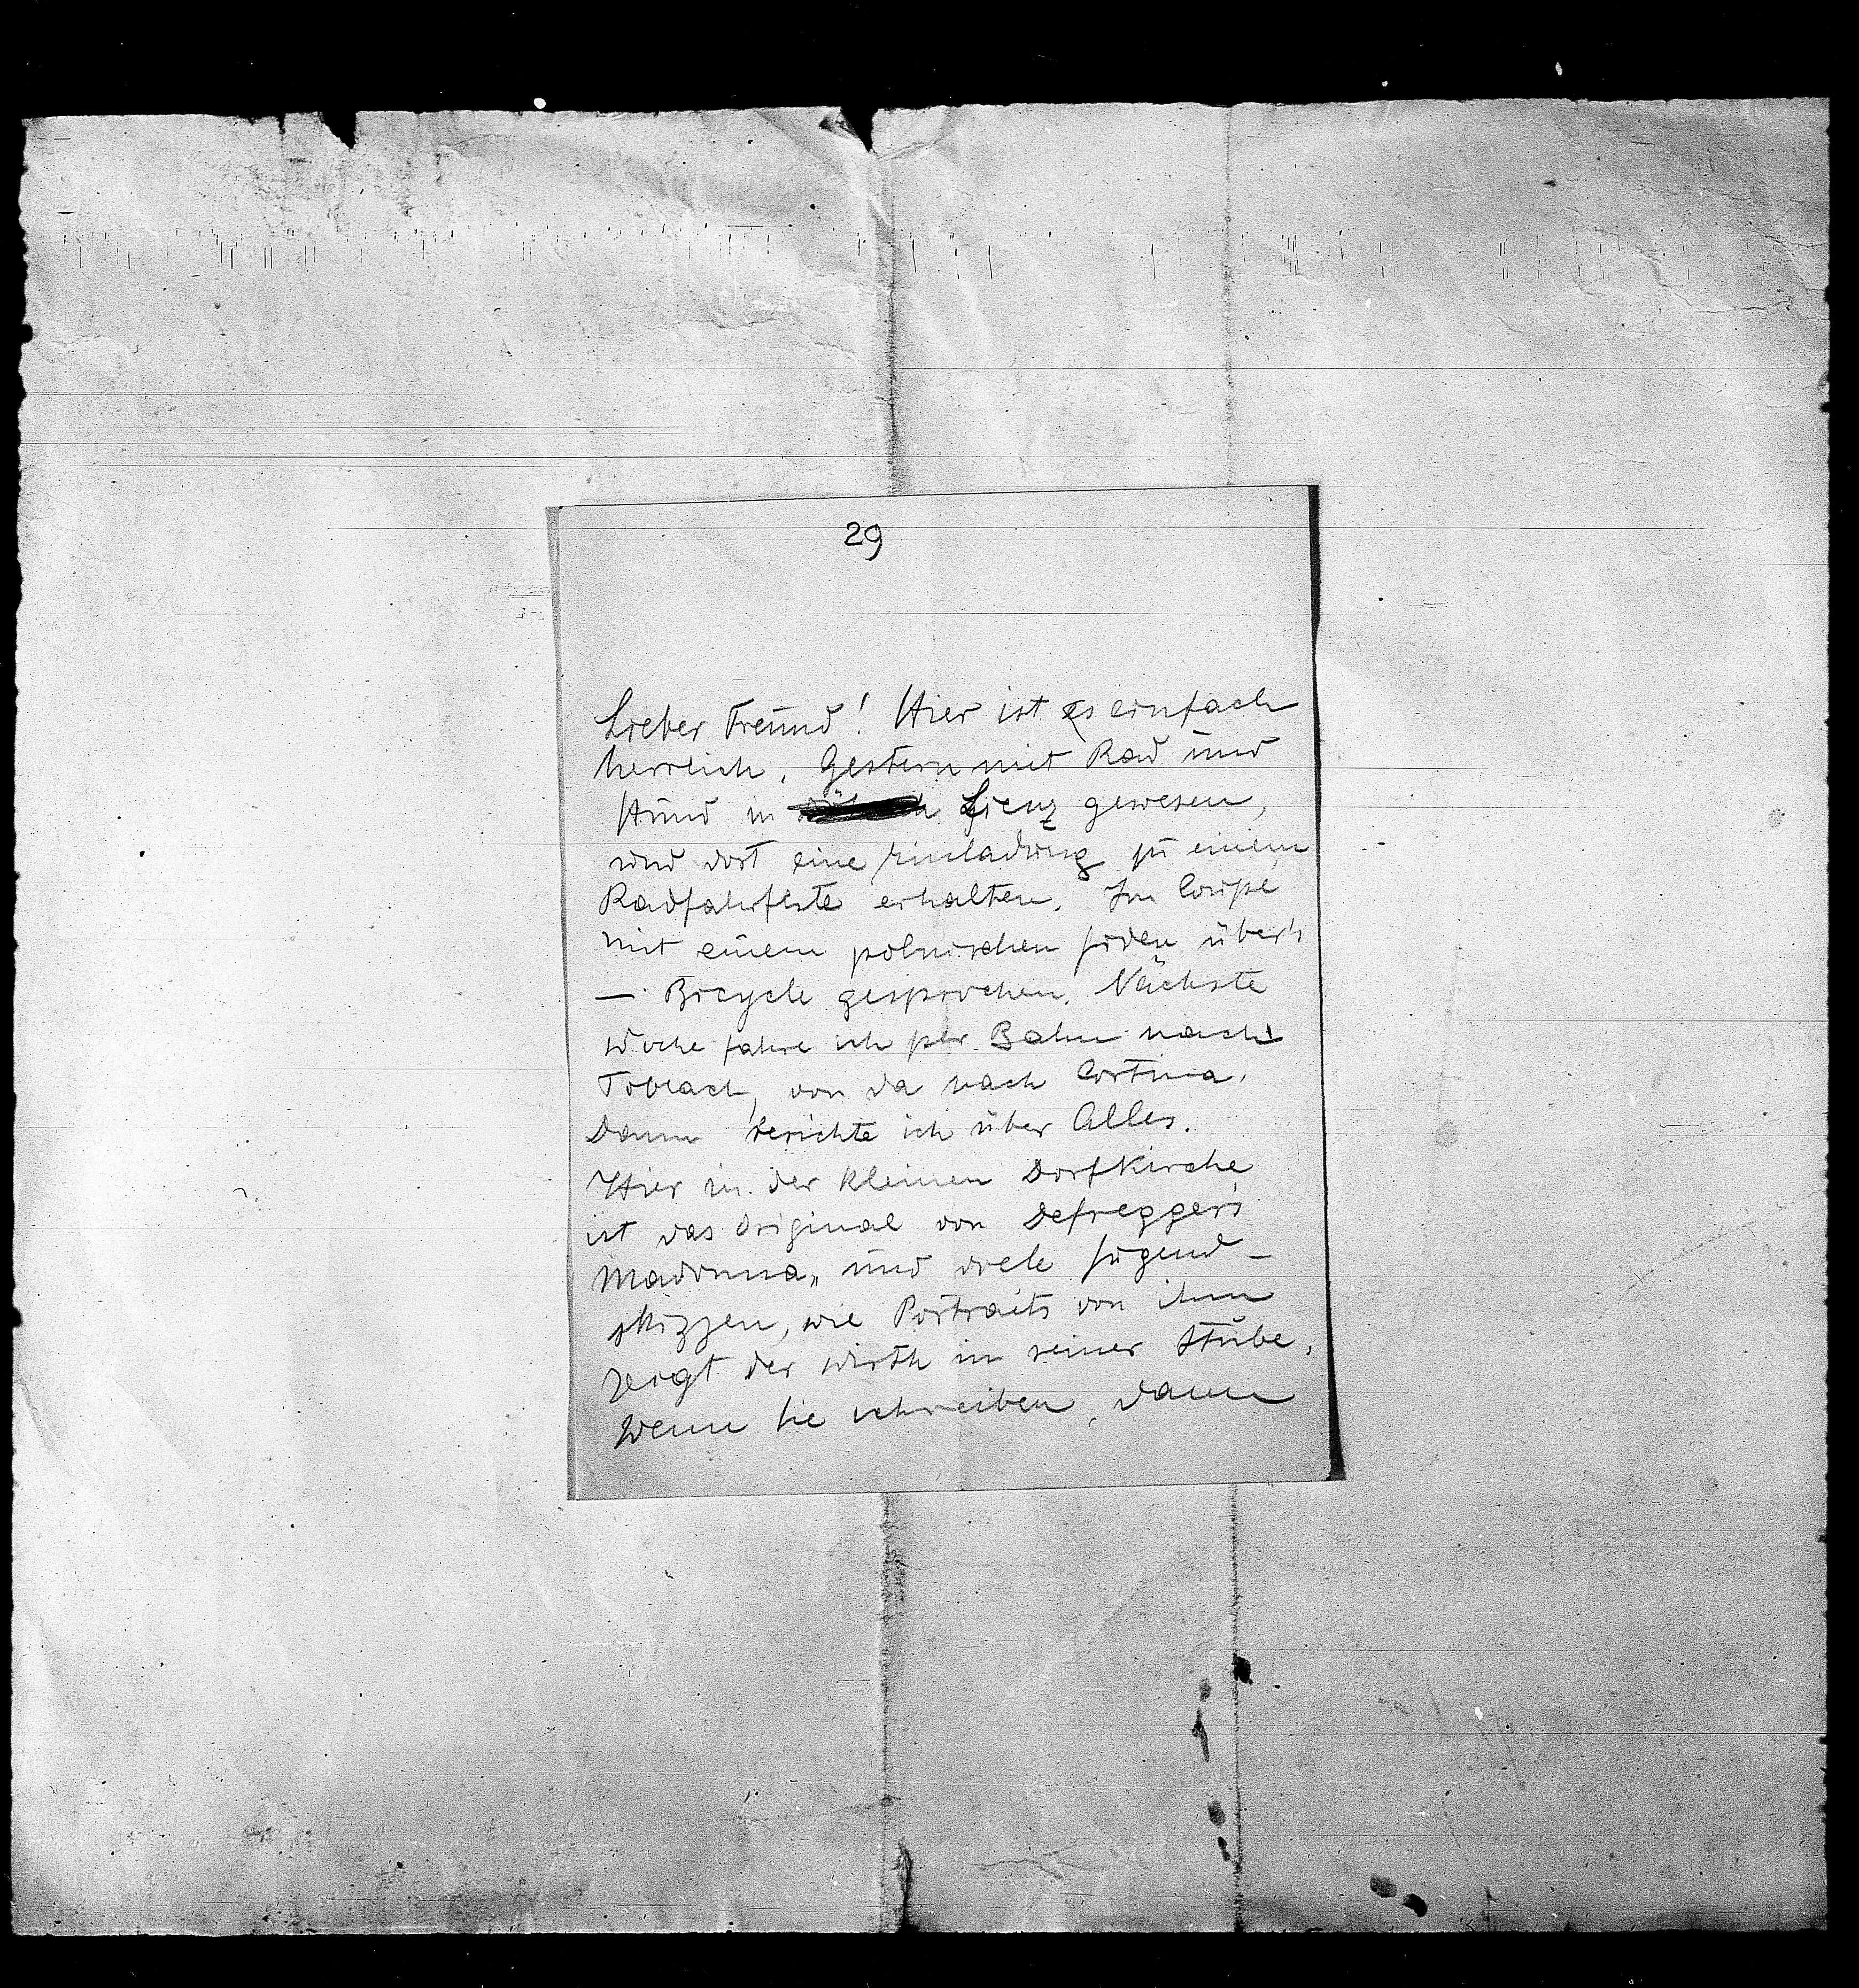 29
Lieber Freund! Hier ist es einfach
herrlich. Gestern mit Rad und
Hund in Lienz gewesen,
und dort eine Einladung zu einem
Radfahrfeste erhalten. Im Coupé
mit einem polnischen Juden über's
— Bicycle gesprochen. Nächste
Woche fahre ich per Bahn nach
Toblach, von da nach Cortina.
Dann berichte ich über Alles.
Hier in der kleinen Dorfkirche
ist das Original von Defregger's
Madonna„ und viele Jugend-
skizzen, wie Portraits von ihm
zeigt der Wirth in seiner Stube.
Wenn Sie schreiben, dann